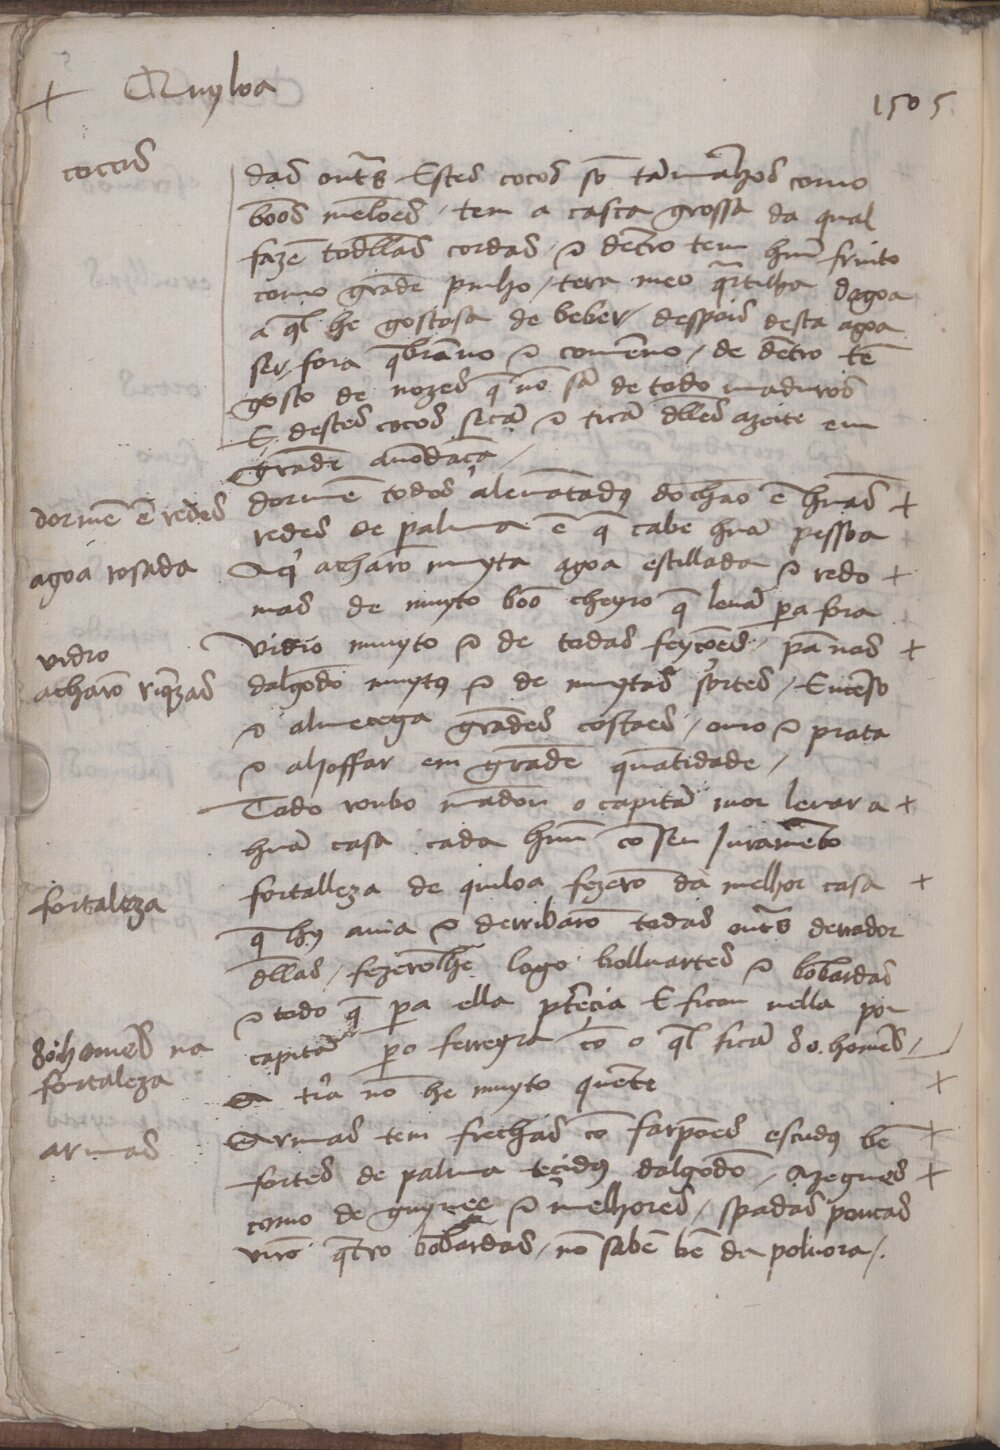 + Quyloa
1505
coccos
das outrªs Estes cocos sõ tãmãhos como
boõs melloẽs / tem a casca grossa da qual
fazẽ todllas cordas ⁊ dẽtro tem hũu fruito
como grãde pinho / tera meo qªrtilho dagoa
a ql̃ he gostosa de beber / despois desta agoa
ser fora qbrãno ⁊ comẽno / de dẽtro tẽ
gosto de nozes q̃ nõ sã de todo maduros
E destes cocos secã ⁊ ticã dlles azeite em
grãde auõdãça /
dormẽ ẽ redes
dormẽ todos aleuãtadꝯ do chão ẽ hũas +
redes de palma ẽ q̃ cabe hũa pessoa
agoa rosada
Aq̃ acharõ muyta agoa estillada ⁊ redo +
mas de muyto boõ cheyro q̃ leuã pa fora
vidro
Vidrio muyto ⁊ de todas feyçoẽs / pãnos +
acharõ riq̃zas
dalgodõ muytꝯ ⁊ de muytas sortes / Encẽso
⁊ almecega grãdes costaes / ouro ⁊ prata
⁊ aljoffar em grãde quãtidade /
Todo roubo mãdou o capitã mor leuar a +
hũa casa cada hũu cõ seu Juramẽto
fortaleza
fortalleza de quiloa fezerõ da melhor casa +
q̃ hy auia ⁊ derribarõ todas outrªs derrador
dllas / fezerõlhe logo balluartes ⁊ bõbardas
⁊ todo q̃ pa ella ptẽcia E ficou nella por
80 homẽs na
fortaleza
capitã po ferreyra cõ o ql̃ ficã 80 homẽs /
A trã nõ he muyto quẽte +
armas
Armas tem frechas cõ farpoẽs escudꝯ bẽ +
fortes de palma teçidꝯ dalgodõ / Azegues +
como de guynee ⁊ melhores / spadas poucas
virõ qªtro bõbardas / nõ sabẽ bẽ da poluora /.